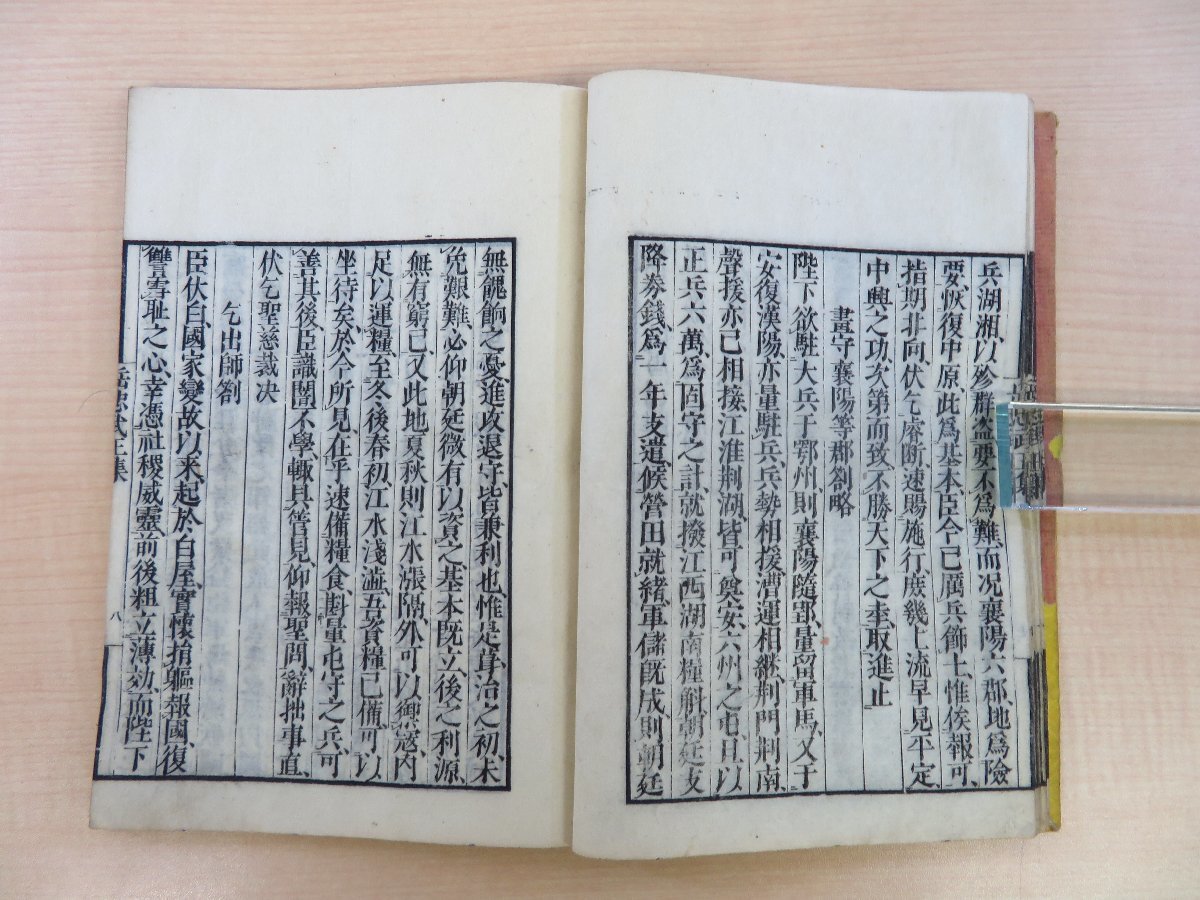 兵湖湘、以殄群盜、要不爲難、而況襄陽六郡、地爲險
要、恢復中原、此爲基本、臣今已厲兵飭士、惟俟報可、
指期北向、伏乞睿斷、速賜施行、庶幾上流早見平定、
中興之功、次第而致、不勝天下之幸、取進止
畫守襄陽等郡劄略
陛下欲駐大兵于鄂州、則襄陽隨郢、量留軍馬、又于
安復漢陽、亦量駐兵、兵勢相援、漕運相繼、荆門荆南、
聲援亦已相接、江淮荆湖、皆可奠安、六州之屯、且以
正兵六萬、爲固守之計、就撥江西湖南糧斛、朝廷支
降券錢、爲一年支遣、候營田就緒、軍儲旣成、則朝廷
無餽餉之憂、進攻退守、皆兼利也、惟是葺治之初、未
免艱難、必仰朝廷微有以資之、基本既立、後之利源、
無有窮已、又此地夏秋則江水漲隔、外可以禦寇、內
足以運糧、至冬後春初、江水淺澁、吾資糧已備、可以
坐待矣、於今所見、在乎速備糧食、斟量屯守之兵、可
善其後、臣識闇不學、輙具管見、仰報聖問、辭拙事直、
伏乞聖慈裁决
乞出師劄
臣伏自國家變故以來、起於白屋、實懷捐軀報國、復
讐雪恥之心、幸憑社稷威靈、前後粗立薄効、而陛下
岳忠武王集
八